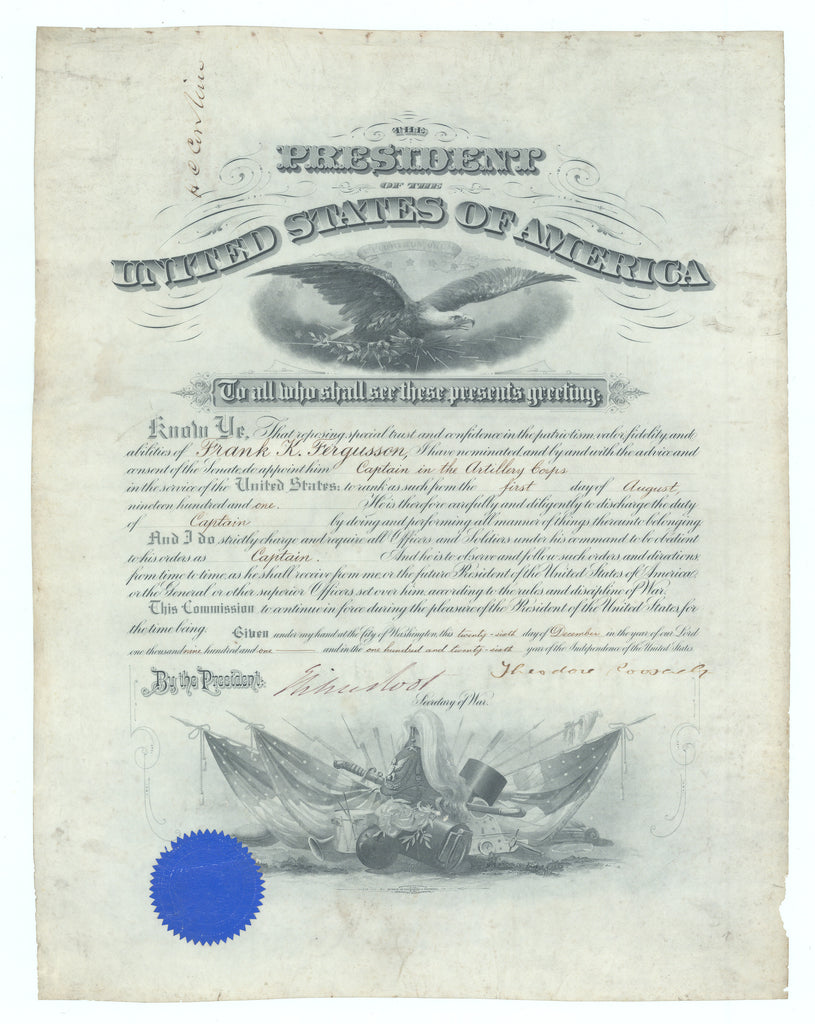 THE
PRESIDENT
OF THE
UNITED STATES OF AMERICA
To all who shall see these presents greeting:
Know Ye, That reposing special trust and confidence in the patriotism valor fidelity and
abilities of Frank K. Fergusson, I have nominated and by and with the advice and
consent of the Senate do appoint him Captain in the Artillery Corps
in the service of the United States: to rank as such from the first day of August,
nineteen hundred and one. He is therefore carefully and diligently to discharge the duty
of Captain by doing and performing all manner of things thereunto belonging.
And I do strictly charge and require all Officers and Soldiers under his command to be obedient
to his orders as Captain. And he is to observe and follow such orders and directions
from time to time as he shall receive from me or the future President of the United States of America
or the General or other superior Officers set over him, according to the rules and discipline of War.
This Commission to continue in force during the pleasure of the President of the United States for
the time being.
Given under my hand at the City of Washington, this twenty-sixth day of December in the year of our Lord
one thousand nine hundred and one and in the one hundred and twenty-sixth year of the Independence of the United States
By the President: Elihu Root Theodore Roosevelt
Secretary of War.